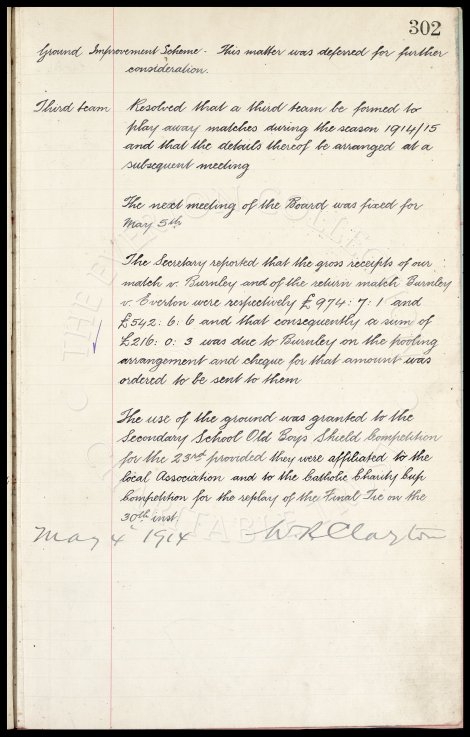 302
Ground Improvement Scheme. This matter was deferred for further
consideration.
Third team Resolved that a third team be formed to
play away matches during the season 1914/15
and that the details thereof be arranged at a
subsequent meeting
The next meeting of the Board was fixed for
May 5th
The Secretary reported that the gross receipts of our
match v. Burnley and of the return match Burnley
v. Everton were respectively £974:7:1 and
£542:6:6 and that consequently a sum of
£216:0:3 was due to Burnley on the pooling
arrangement and cheque for that amount was
ordered to be sent to them
The use of the ground was granted to the
Secondary School Old Boys Shield Competition
for the 23rd provided they were affiliated to the
local Association and to the Catholic Charity Cup
Competition for the replay of the Final Tie on the
30th inst
May 4 1914 W R Clayton
THE EVERTON COLLECTION
CHARITABLE